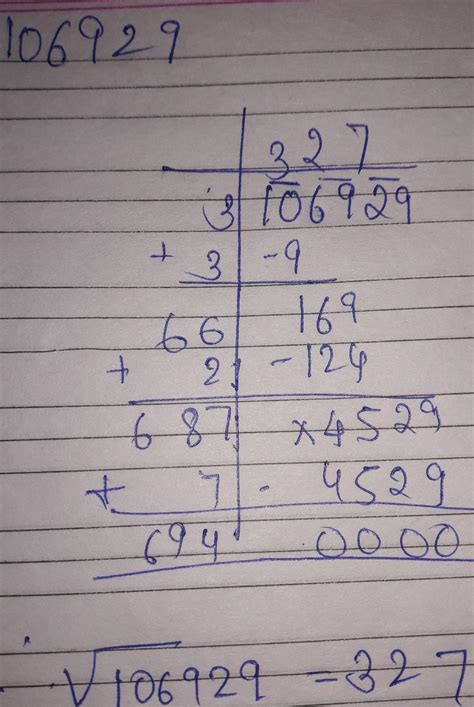 106929
327
3 106929
+ 3 -9
66 169
+ 2 -124
687 ×4529
+ 7 - 4529
694 0000
√106929 = 327